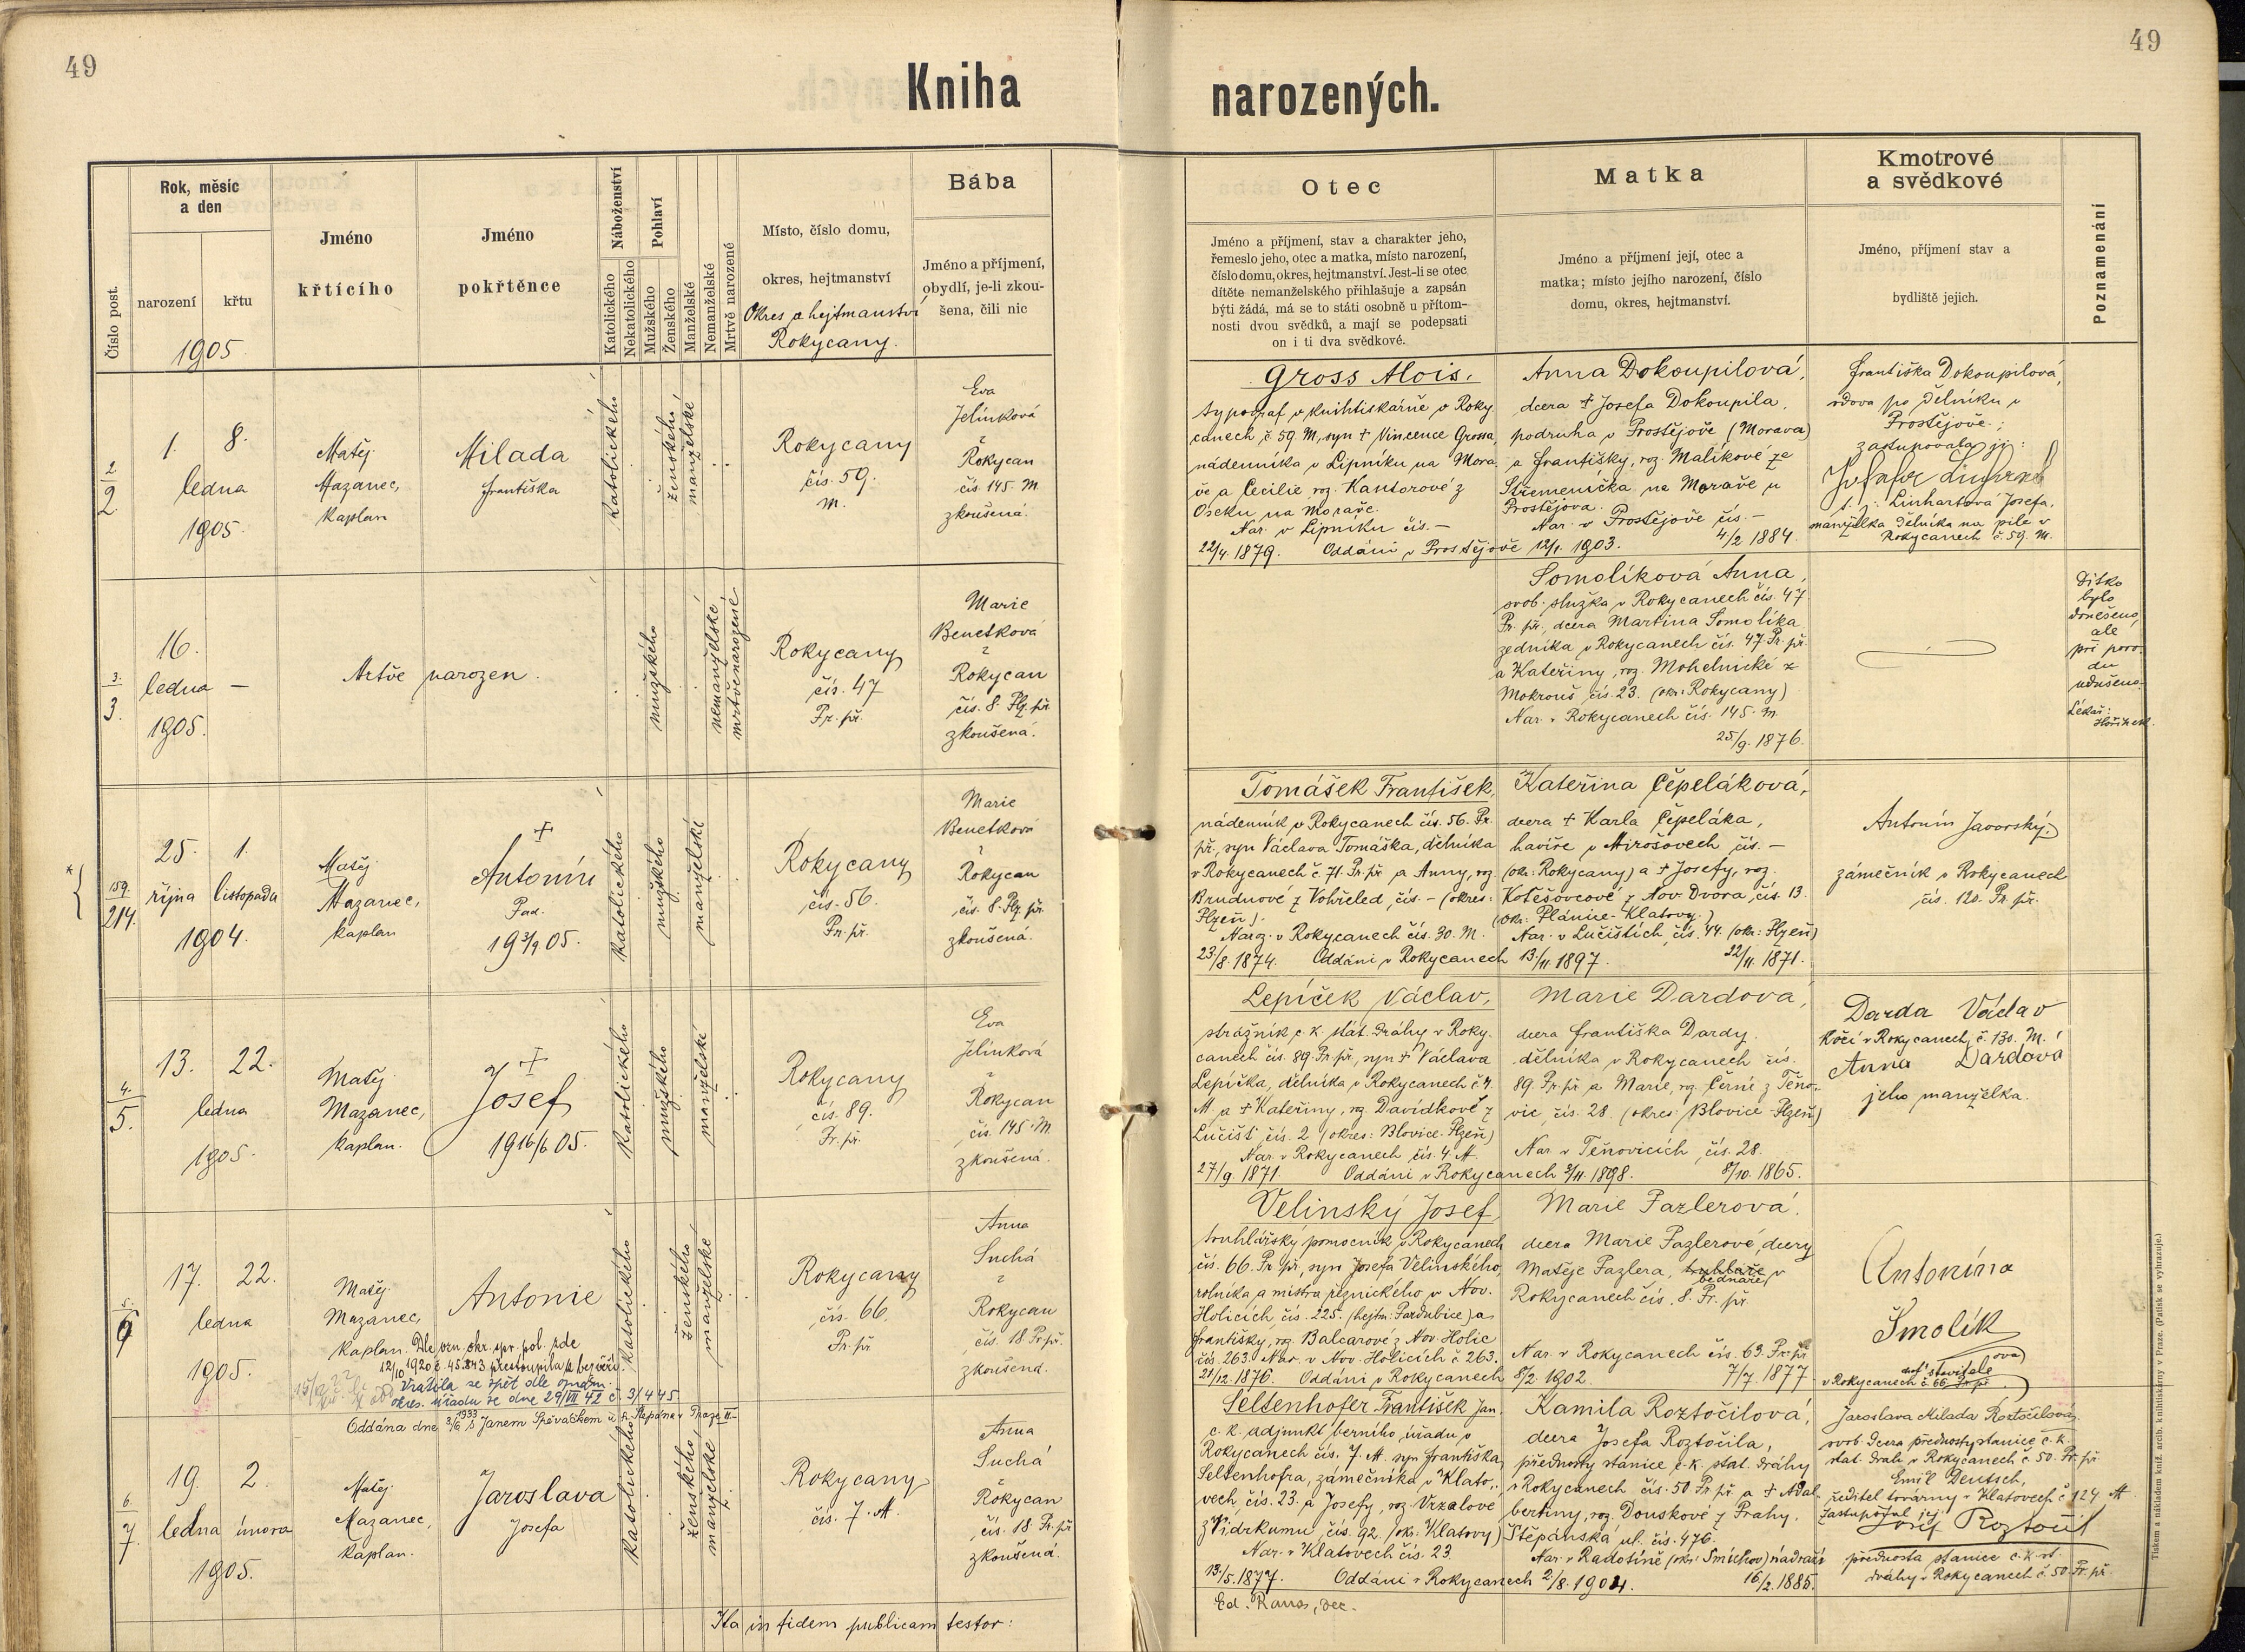 49
49
Kniha narozených.
Číslo post.
Rok, měsíc
a den
narození
křtu
1905
Jméno
křtícího
Jméno
pokřtěnce
Náboženství
Katolického
Nekatolického
Pohlaví
Mužského
Ženského
Manželské
Nemanželské
Mrtvě narozené
Místo, číslo domu,
okres, hejtmanství
Okres a hejtmanství
Rokycany.
Bába
Jméno a příjmení,
obydlí, je-li zkou-
šena, čili nic
Otec
Jméno a příjmení, stav a charakter jeho,
řemeslo jeho, otec a matka, místo narození,
číslo domu, okres, hejtmanství. Jest-li se otec
dítěte nemanželského přihlašuje a zapsán
býti žádá, má se to státi osobně u přítom-
nosti dvou svědků, a mají se podepsati
on i ti dva svědkové.
Matka
Jméno a příjmení její, otec a
matka; místo jejího narození, číslo
domu, okres, hejtmanství.
Kmotrové
a svědkové
Jméno, příjmení stav a
bydliště jejich.
Poznamenání
2/2
1. 8.
ledna
1905.
Matěj
Mazanec,
kaplan
Milada
Františka
katolického
ženského
manželské
Rokycany
čís. 59.
M.
Eva
Jelínková
z
Rokycan
čís. 145. M.
zkoušená.
Gross Alois.
typograf v knihtiskárně v Roky
canech č 59. M, syn † Vincence Grossa,
nádenníka v Lipníku na Mora
vě a Cecilie roz. Kantorové z
Oseku na Moravě.
Nar. v Lipníku čís. -
22/4. 1879. Oddáni v Prostějově 12/1. 1903.
Anna Dokoupilová,
dcera † Josefa Dokoupila,
podruha v Prostějově (Morava)
a Františky, roz. Malíkové ze
Střemenička na Moravě u
Prostějova.
Nar. v Prostějově čís. -
4/2 1884.
Františka Dokoupilová,
vdova po dělníku v
Prostějově;
zastupovala ji:
t. j. Linhartová Josefa,
manželka dělníka na pile v
Rokycanech č. 59. M.
3./3.
16.
ledna -
1905.
Mrtvě narozen.
mužského
nemanželské
mrtvě narozené
Rokycany
čís. 47
Pr. př.
Marie
Benetková
z
Rokycan
čís. 8. Plz. př.
zkoušená.
Somolíková Anna,
svob. služka v Rokycanech čís. 47
Pr. př., dcera Martina Somolíka
zedníka v Rokycanech čís. 47. Pr. př.
a Kateřiny, roz. Mohelnické z
Mokrouš, čís. 23. (okr: Rokycany)
Nar. v Rokycanech čís. 145. M.
25/9. 1876.
Dítko
bylo
donešeno,
ale
při poro-
du
udušeno.
Lékař:
* {
159./214.
25. 1.
října listopadu
1904.
Matěj
Mazanec,
kaplan
†
Antonín
Pad.
19 3/9 05.
katolického
mužského
manželské
Rokycany
čís. 56.
Pr. př.
Marie
Benetková
z
Rokycan
čís. 8. Plz. př.
zkoušená.
Tomášek František,
nádenník v Rokycanech čís. 56. Pr.
př., syn Václava Tomáška, dělníka
v Rokycanech č. 71. Pr. př. a Anny, roz
Brudnové z Vohřeled, čís. - (okres:
Plzeň).
Naroz. v Rokycanech čís. 30. M.
23/8. 1874. Oddáni v Rokycanech 13/11 1897.
Kateřina Čepeláková,
dcera † Karla Čepeláka,
havíře v Mirošovech čís. -
(okr: Rokycany) a † Josefy, roz.
Kotěšovcové z Nov. Dvora, čís. 13.
(okr: Plánice-Klatovy.)
Nar. v Lučištích, čís. 44. (okr: Plzeň)
22/11. 1871.
Antonín Javorský,
zámečník v Rokycanech
čís. 120. Pr. př.
4./5.
13. 22.
ledna
1905.
Matěj
Mazanec,
kaplan.
†
Josef
19 16/6 05.
katolického
mužského
manželské
Rokycany
čís. 89.
Pr. př.
Eva
Jelínková
z
Rokycan
čís. 145. M
zkoušená.
Lepíček Václav,
strážník c. k. stát. dráhy v Roky.
canech čís. 89. Pr. př., syn † Václava
Lepíčka, dělníka v Rokycanech č 4.
M a † Kateřiny, roz. Davídkové z
Lučišť čís. 2 (okres: Blovice-Plzeň)
Nar. v Rokycanech čís. 4. M.
27/9. 1871. Oddáni v Rokycanech 3/11. 1898.
Marie Dardová,
dcera Františka Dardy,
dělníka v Rokycanech čís.
89. Pr. př. a Marie, roz. Černé z Těno-
vic, čís. 28. (okres: Blovice-Plzeň)
Nar. v Těnovicích, čís. 28.
8/10. 1865.
Darda Václav
kočí v Rokycanech, č. 130. M.
Anna Dardová
jeho manželka.
5./6
17. 22.
ledna
1905.
Matěj
Mazanec,
kaplan.
Antonie
Dle ozn. okr. spr. pol. zde
12/10 1920 č. 45.843 přestoupila k bezvěří
Vrátila se zpět dle oznám.
okres. úřadu ze dne 29/VII 42 č. 31445
Oddána dne 3/6 1933 s Janem Spěváčkem u sv. Štěpána v Praze II.
katolického
ženského
manželské
Rokycany
čís. 66.
Pr. př.
Anna
Suchá
z
Rokycan
čís. 18. Pr. př.
zkoušená.
Velinský Josef,
truhlářský pomocník v Rokycanech
čís. 66. Pr. př., syn Josefa Velinského,
rolníka a mistra řeznického v Nov.
Holicích, čís. 225. (hejtm: Pardubice) a
Františky, roz. Balcarové z Nov. Holic
čís. 263. Nar. v Nov. Holicích č 263.
21/12. 1876. Oddáni v Rokycanech 8/2. 1902.
Marie Fazlerová.
dcera Marie Fazlerové, dcery
Matěje Fazlera, truhláře, v
bednáře,
Rokycanech čís. 8. Pr. př.
Nar. v Rokycanech čís. 63. Pr. př.
7/7. 1877
Antonína
Šmolík
ová
v Rokycanech č. 66. Pr. př.
6./7.
19. 2.
ledna února
1905.
Matěj
Mazanec,
kaplan.
Jaroslava
Josefa
katolického
ženského
manželské
Rokycany
čís. 7. M.
Anna
Suchá
z
Rokycan
čís. 18. Pr. př
zkoušená.
Seltenhofer František Jan,
c. k. adjunkt berního úřadu v
Rokycanech čís. 7. M. syn Františka
Seltenhofra, zámečníka v Klato-
vech, čís. 23. a Josefy, roz. Vrzalové
z Vídrkumu, čís. 92. (okr: Klatovy)
Nar. v Klatovech čís. 23.
13/5. 1877. Oddáni v Rokycanech 2/8. 1904.
Kamila Roztočilová,
dcera Josefa Roztočila,
přednosty stanice c. k. stát. dráhy
v Rokycanech čís. 50 Pr. př. a † Adal
bertiny, roz. Douskové z Prahy,
Štěpánská ul. čís. 476.
Nar. v Radotíně (okr: Smíchov) nádraží
16/2. 1885.
Jaroslava Milada Roztočilová
svob. dcera přednosty stanice c. k.
stat. drah v Rokycanech č. 50. Pr. př.
Emil Deutsch,
ředitel továrny v Klatovech č 124 M
zastupoval jej
Josef Roztočil
přednosta stanice c. k. st.
dráhy v Rokycanech č. 50. Pr. př.
Ita in fidem publicam testor:
Ed. Raus, dec.
Tiskem a nákladem kníž. arcib. knihtiskárny v Praze. (Patisk se vyhrazuje.)